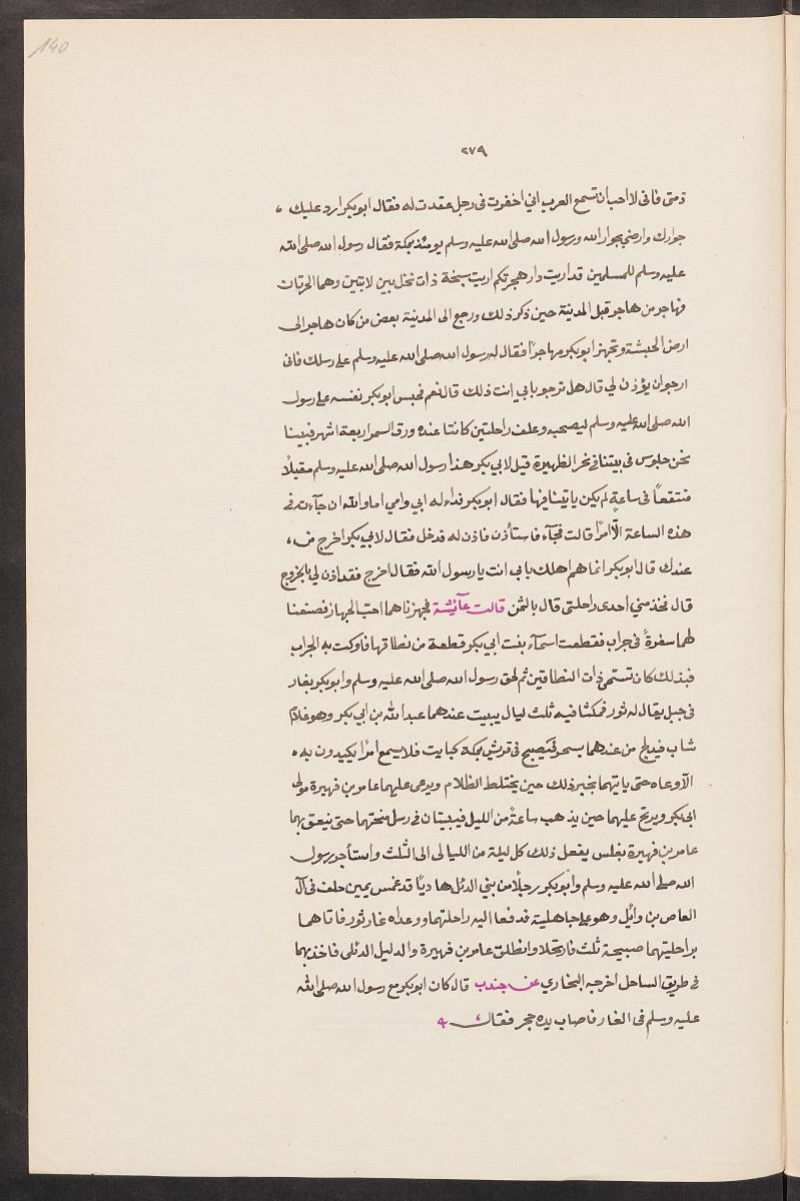 140
٢٧٩
ذمتى فانى لا احب ان تسمع العرب اني اخفرت فى رجل عقدت له فقال ابو بكر ارد عليك
جوارك وارضى بجوار الله ورسول الله صلى الله عليه وسلم يومئذ بمكة فقال رسول الله صلى الله
عليه وسلم للمسلمين قد اريت دار هجرتكم اريت سبخة ذات نخل بين لابتين وهما الحرتان
فهاجر من هاجر قبل المدينة حين ذكر ذلك ورجع الى المدينة بعض من كان هاجر الى
ارض الحبشة وتجهز ابو بكر مهاجرًا فقال له رسول الله صلى الله عليه وسلم على رسلك فانى
ارجو ان يؤذن لي قال هل ترجو بابي انت ذلك قال نعم فحبس ابو بكر نفسه على رسول
الله صلى الله عليه وسلم ليصحبه وعلف راحلتين كانتا عنده ورق السمر اربعة اشهر فبينا
نحن جلوس فى بيتنا فى نحر الظهيرة قيل لابي بكر هذا رسول الله صلى الله عليه وسلم مقبلًا
متقنعًا فى ساعةٍ لم يكن ياتينا فيها فقال ابو بكر فداء له ابي وامي اما والله ان جآء به فى
هذه الساعة الّا امرًا قالت فجآء فاستأذن فاذن له فدخل فقال لابي بكر اخرج من
عندك قال ابو بكر انما هم اهلك بابي انت يا رسول الله فقال اخرج فقد اذن لي بالخروج
قال فخذ مني احدى راحلتى قال بالثمن قالت عآئشة فجهزناهما احبّ الجهاز فصنعنا
لهما سفرةً فى جراب فقطعت اسمآء بنت ابي بكر قطعة من نطاقها فاوكت به الجراب
فبذلك كان تستمى ذات النطاقين ثم لحق رسول الله صلى الله عليه وسلم وابو بكر بغار
فى جبل يقال له ثور فمكثا فيه ثلث ليال يبيت عندهما عبد الله بن ابي بكر وهو غلامٌ
شاب فيدلج من عندهما بسحر فيصبح فى قريش بمكة كبايت فلا يسمع امرًا يكيدون به
الّا وعاه حتى ياتيهما بخبر ذلك حين يختلط الظلام ويرعى عليهما عامر بن فهيرة مولى
ابى بكر ويريح عليهما حين يذهب ساعةٌ من الليل فيبيتان فى رسل منحتهما حتى ينعق بهما
عامر بن فهيرة بغلس يفعل ذلك كل ليلة من الليالى الى الثلث واستأجر رسول
الله صلى الله عليه وسلم وابو بكر رجلًا من بني الدئل هاديًا قد غمس يمين حلف فى آل
العاص بن وائل وهو على جاهليته فدفعا اليه راحلتهما ووعداه غار ثور فاتاهما
براحلتيهما صبيحة ثلث فارتحلا وانطلق عامر بن فهيرة والدليل الدئلى فاخذ بهما
فى طريق الساحل اخرجه البخاري عن جندب قال كان ابو بكر مع رسول الله صلى الله
عليه وسلم فى الغار فاصاب يده حجر فقال